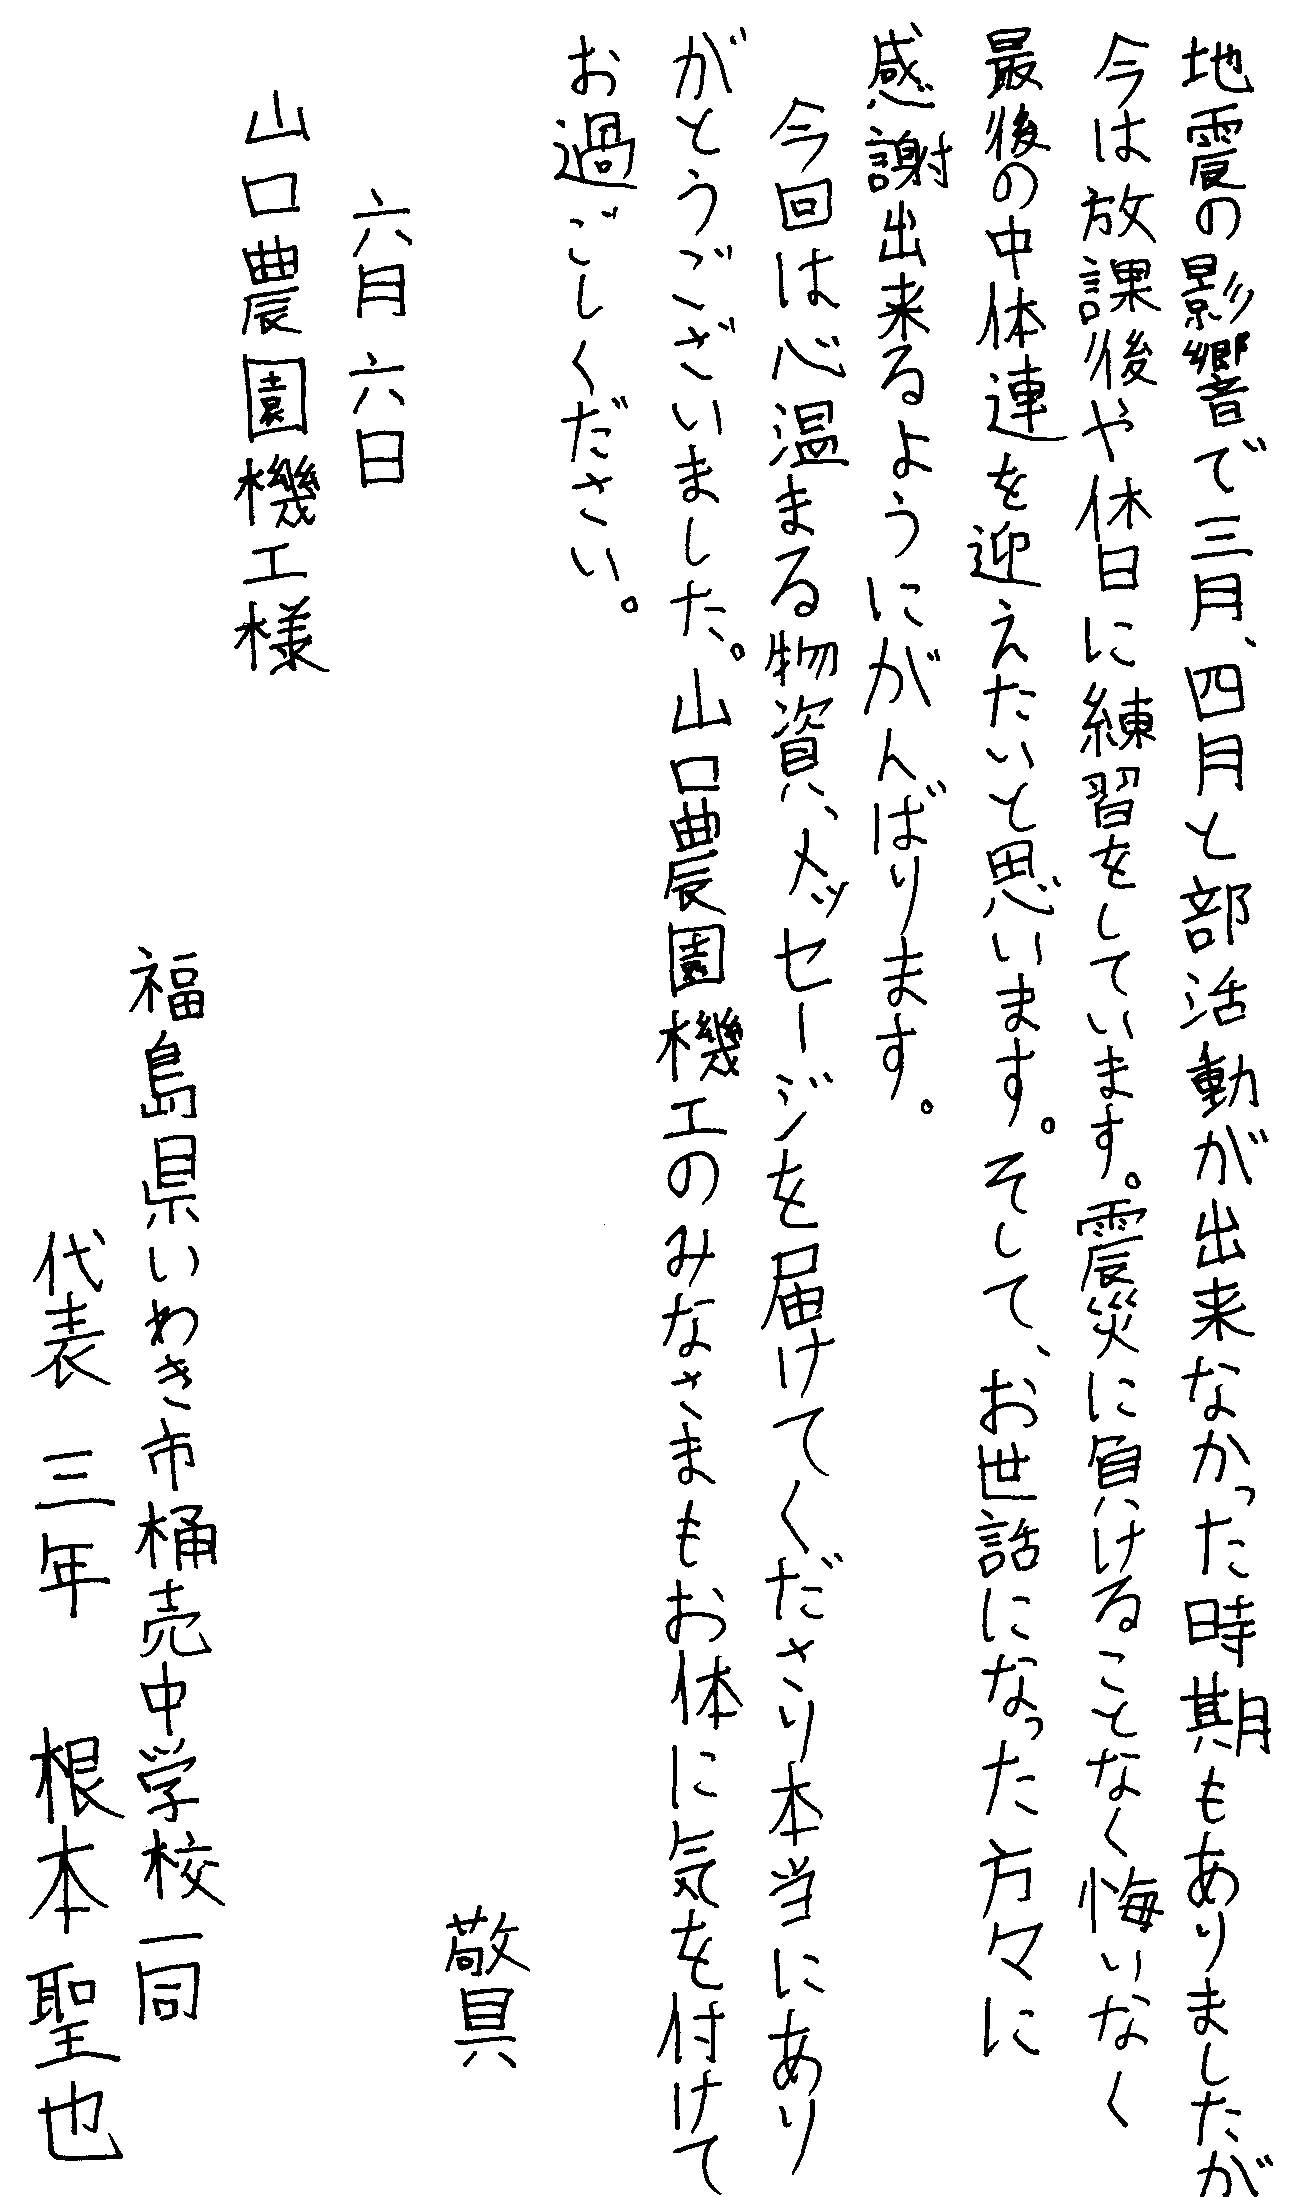 地震の影響で三月、四月と部活動が出来なかった時期もありましたが
今は放課後や休日に練習をしています。震災に負けることなく悔いなく
最後の中体連を迎えたいと思います。そして、お世話になった方々に
感謝出来るようにがんばります。
今回は心温まる物資、メッセージを届けてくださり本当にあり
がとうございました。山口農園機工のみなさまもお体に気を付けて
お過ごしください。
敬具
六月六日
山口農園機工様
福島県いわき市桶売中学校一同
代表 三年 根本聖也